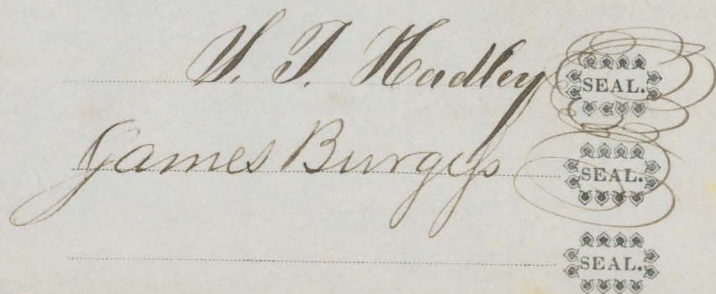 S. T. Hadley SEAL.
James Burgess SEAL.
SEAL.